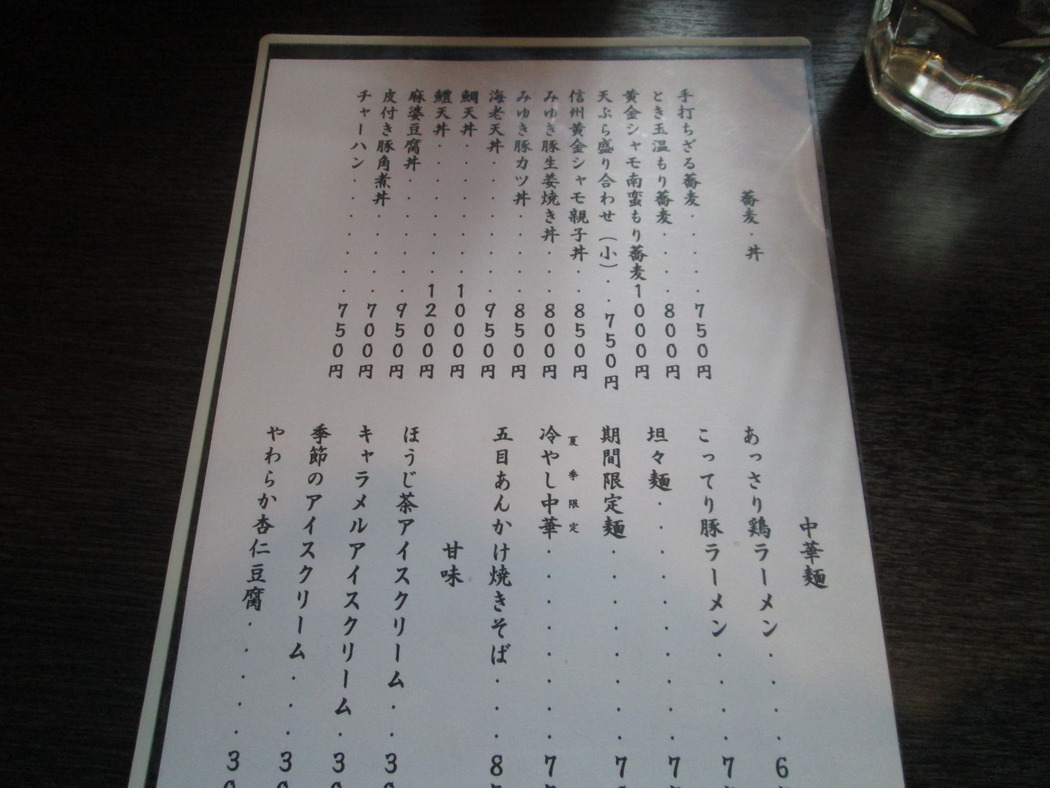 蕎麦・丼
手打ちざる蕎麦・・・・750円
とき玉温もり蕎麦・・・800円
黄金シャモ南蛮もり蕎麦1000円
天ぷら盛り合わせ（小）・・750円
信州黄金シャモ親子丼・・850円
みゆき豚生姜焼き丼・・・800円
みゆき豚カツ丼・・・・・850円
海老天丼・・・・・・・950円
鯛天丼・・・・・・・1000円
鱧天丼・・・・・・・1200円
麻婆豆腐丼・・・・・・950円
皮付き豚角煮丼・・・・700円
チャーハン・・・・・・750円
中華麺
あっさり鶏ラーメン・・・・6
こってり豚ラーメン・・・・7
坦々麺・・・・・・・7
期間限定麺・・・・・・7
夏季限定
冷やし中華・・・・・・7
五目あんかけ焼きそば・・・8
甘味
ほうじ茶アイスクリーム・・3
キャラメルアイスクリーム・3
季節のアイスクリーム・・・3
やわらか杏仁豆腐・・・・・3